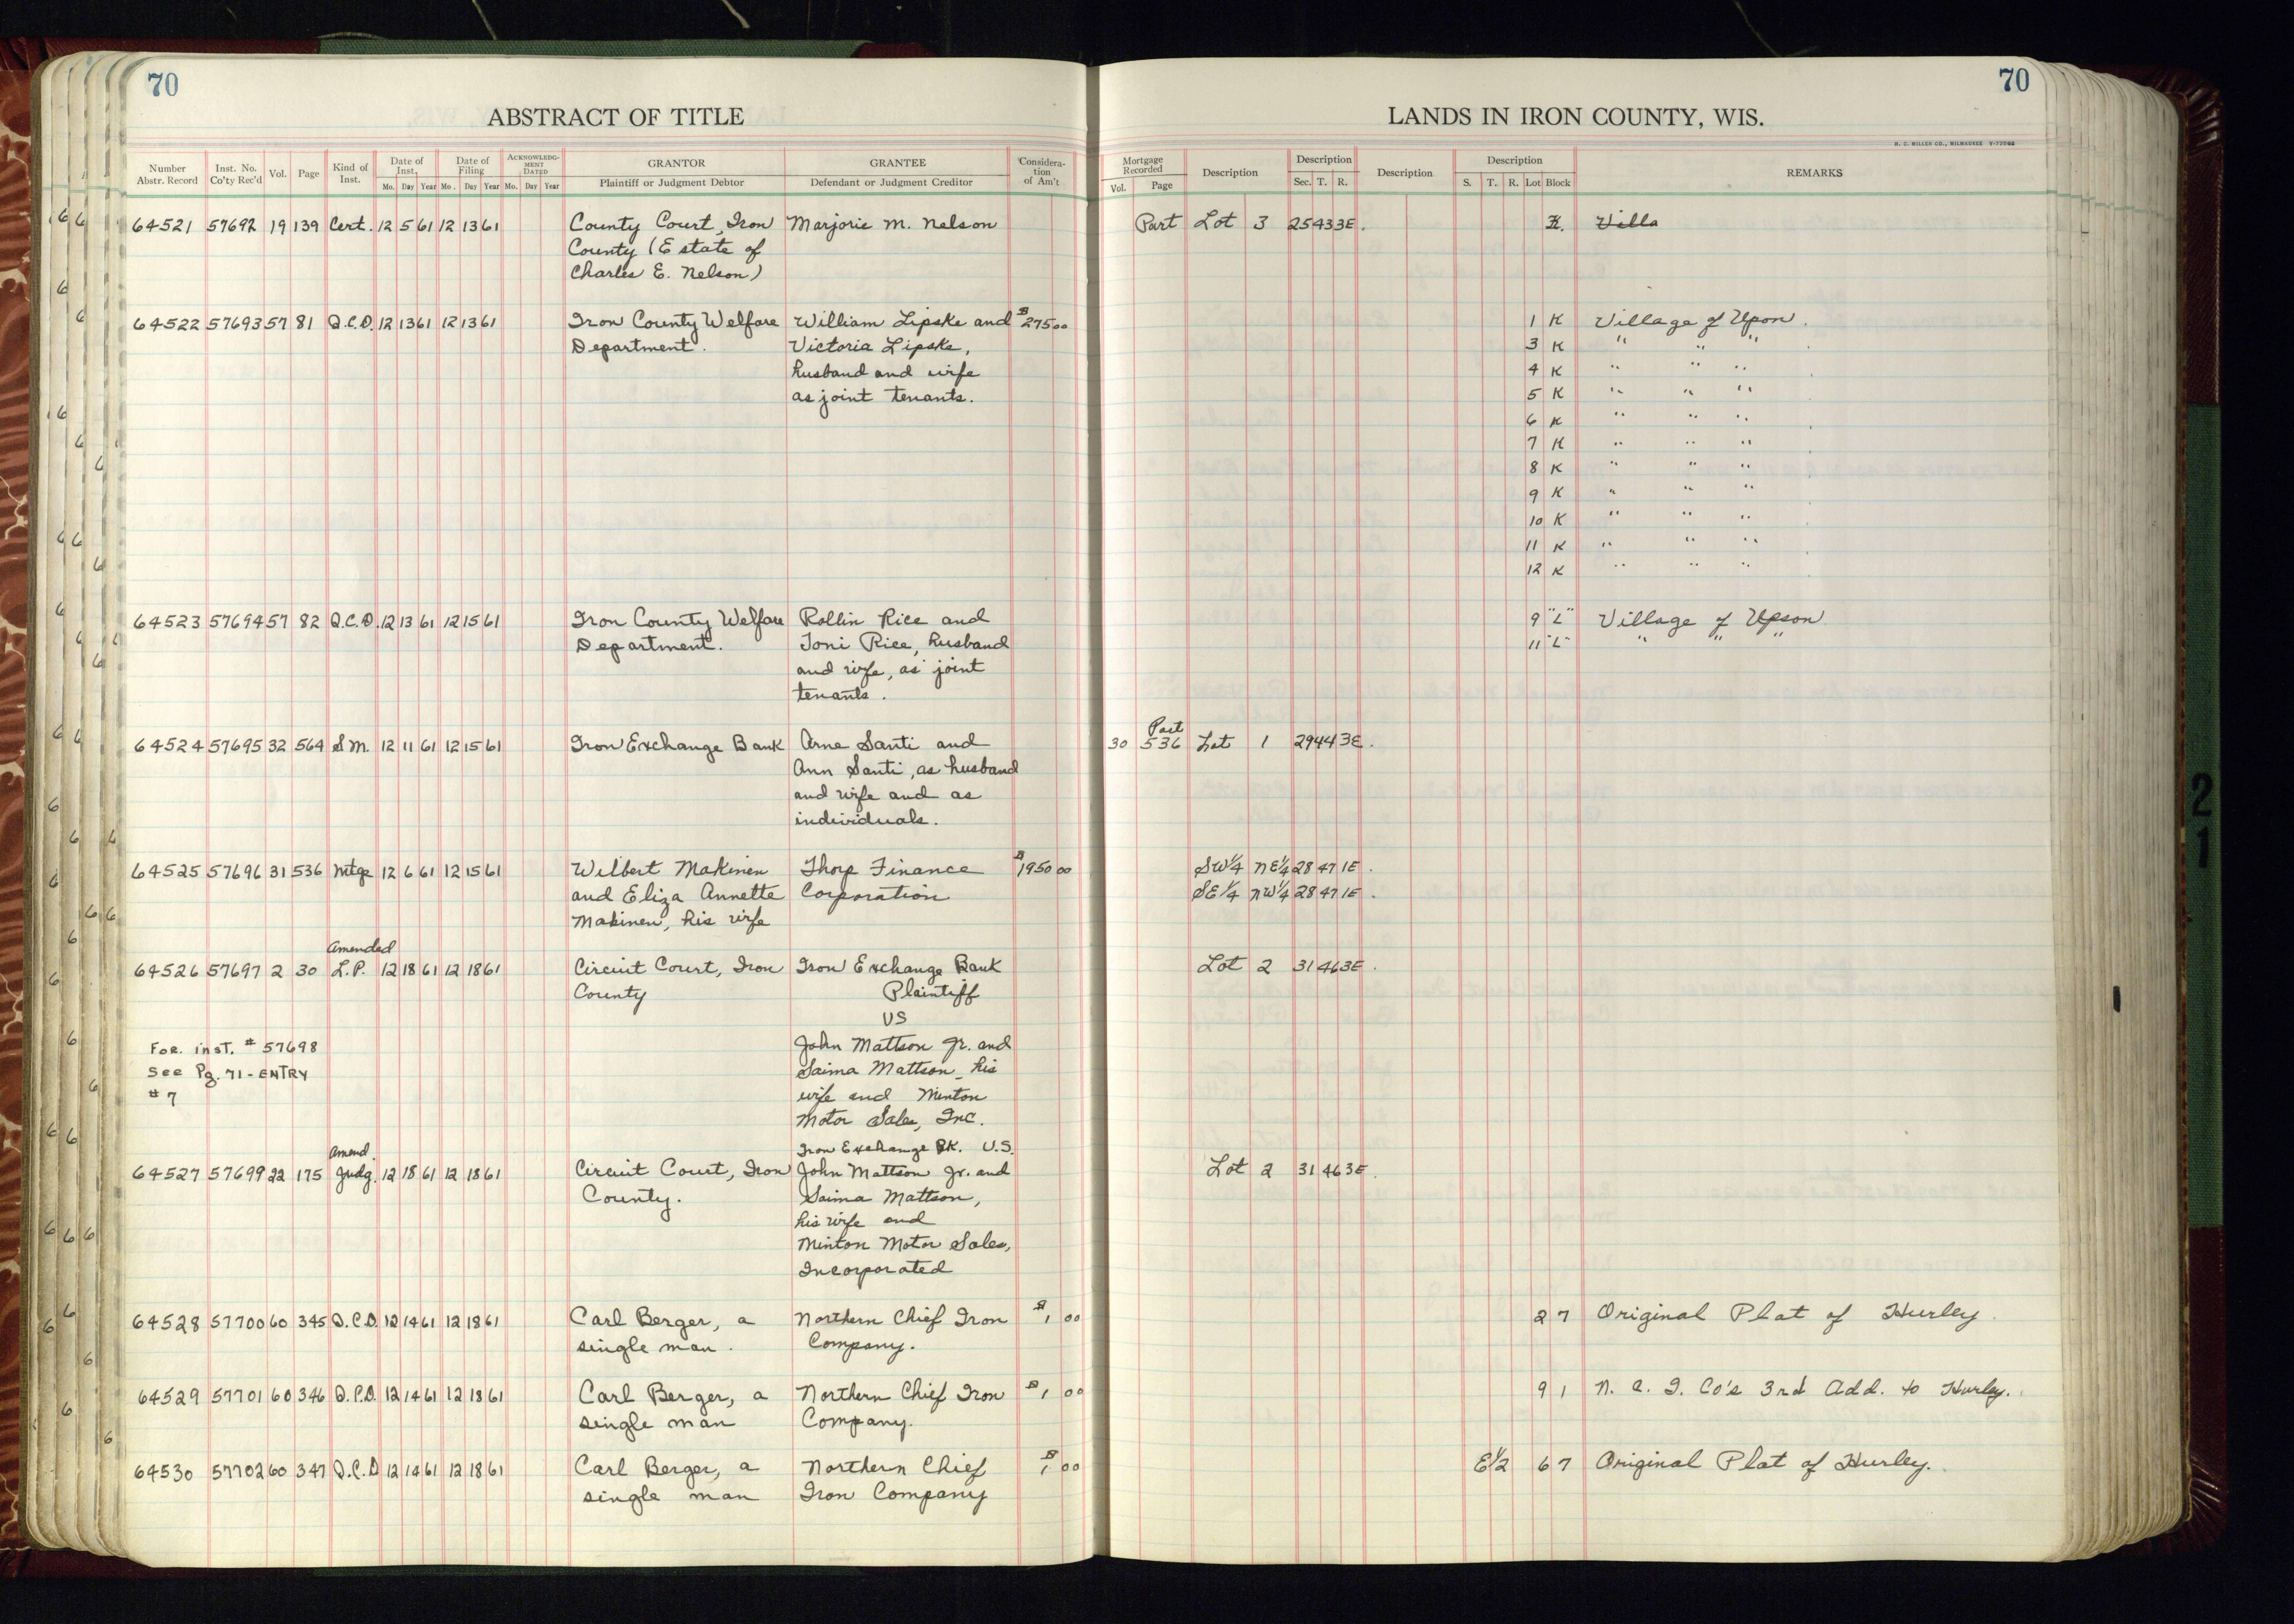 70
70
ABSTRACT OF TITLE
LANDS IN IRON COUNTY, WIS.
H. C. MILLER CO., MILWAUKEE
Number Abstr. Record | Inst. No. Co'ty Rec'd | Vol. | Page | Kind of Inst. | Date of Inst. Mo. Day Year | Date of Filing Mo. Day Year | ACKNOWLEDGMENT DATED Mo. Day Year | GRANTOR Plaintiff or Judgment Debtor | GRANTEE Defendant or Judgment Creditor | Consideration of Am't | Mortgage Recorded Vol. Page | Description | Description Sec. T. R. | Description | Description S. T. R. Lot Block | REMARKS
64521 57692 19 139 Cert. 12 5 61 12 13 61 County Court, Iron Marjorie M. Nelson Part Lot 3 25 43 3E. K. Villa
County (Estate of
Charles E. Nelson)
64522 57693 57 81 Q.C.D. 12 13 61 12 13 61 Iron County Welfare William Lipske and $275 00 1 K Village of Upon.
Department. Victoria Lipske, 3 K " " "
husband and wife 4 K " " "
as joint tenants. 5 K " " "
6 K " " "
7 K " " "
8 K " " "
9 K " " "
10 K " " "
11 K " " "
12 K " " "
64523 57694 57 82 Q.C.D. 12 13 61 12 15 61 Iron County Welfare Rollin Rice and 9 "L" Village of Upson
Department. Toni Rice, husband 11 "L" " " "
and wife, as joint
tenants.
Part
64524 57695 32 564 S.M. 12 11 61 12 15 61 Iron Exchange Bank Arne Santi and 30 536 Lot 1 29 44 3E.
Ann Santi, as husband
and wife and as
individuals.
64525 57696 31 536 Mtge 12 6 61 12 15 61 Wilbert Makinen Thorp Finance $1950 00 SW¼ NE¼ 28 47 1E.
and Eliza Annette Corporation SE¼ NW¼ 28 47 1E.
Makinen, his wife
Amended
64526 57697 2 30 L.P. 12 18 61 12 18 61 Circuit Court, Iron Iron Exchange Bank Lot 2 31 46 3E.
County Plaintiff
VS
For. inst. # 57698 John Mattson Jr. and
See Pg. 71 - ENTRY Saima Mattson, his
# 7 wife and Minton
Motor Sales, Inc.
Amend. Iron Exchange BK. V.S.
64527 57699 22 175 Judg. 12 18 61 12 18 61 Circuit Court, Iron John Mattson Jr. and Lot 2 31 46 3E.
County. Saima Mattson,
his wife and
Minton Motor Sales,
Incorporated
64528 57700 60 345 Q.C.D. 12 14 61 12 18 61 Carl Berger, a Northern Chief Iron $1 00 2 7 Original Plat of Hurley.
single man. Company.
64529 57701 60 346 Q.C.D. 12 14 61 12 18 61 Carl Berger, a Northern Chief Iron $1 00 9 1 N. C. I. Co's 3rd Add. to Hurley.
single man Company.
64530 57702 60 347 Q.C.D 12 14 61 12 18 61 Carl Berger, a Northern Chief $1 00 E½ 6 7 Original Plat of Hurley.
single man Iron Company
21